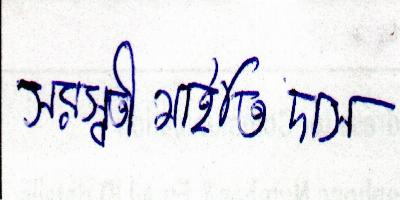 সরস্বতী মাইতি দাস